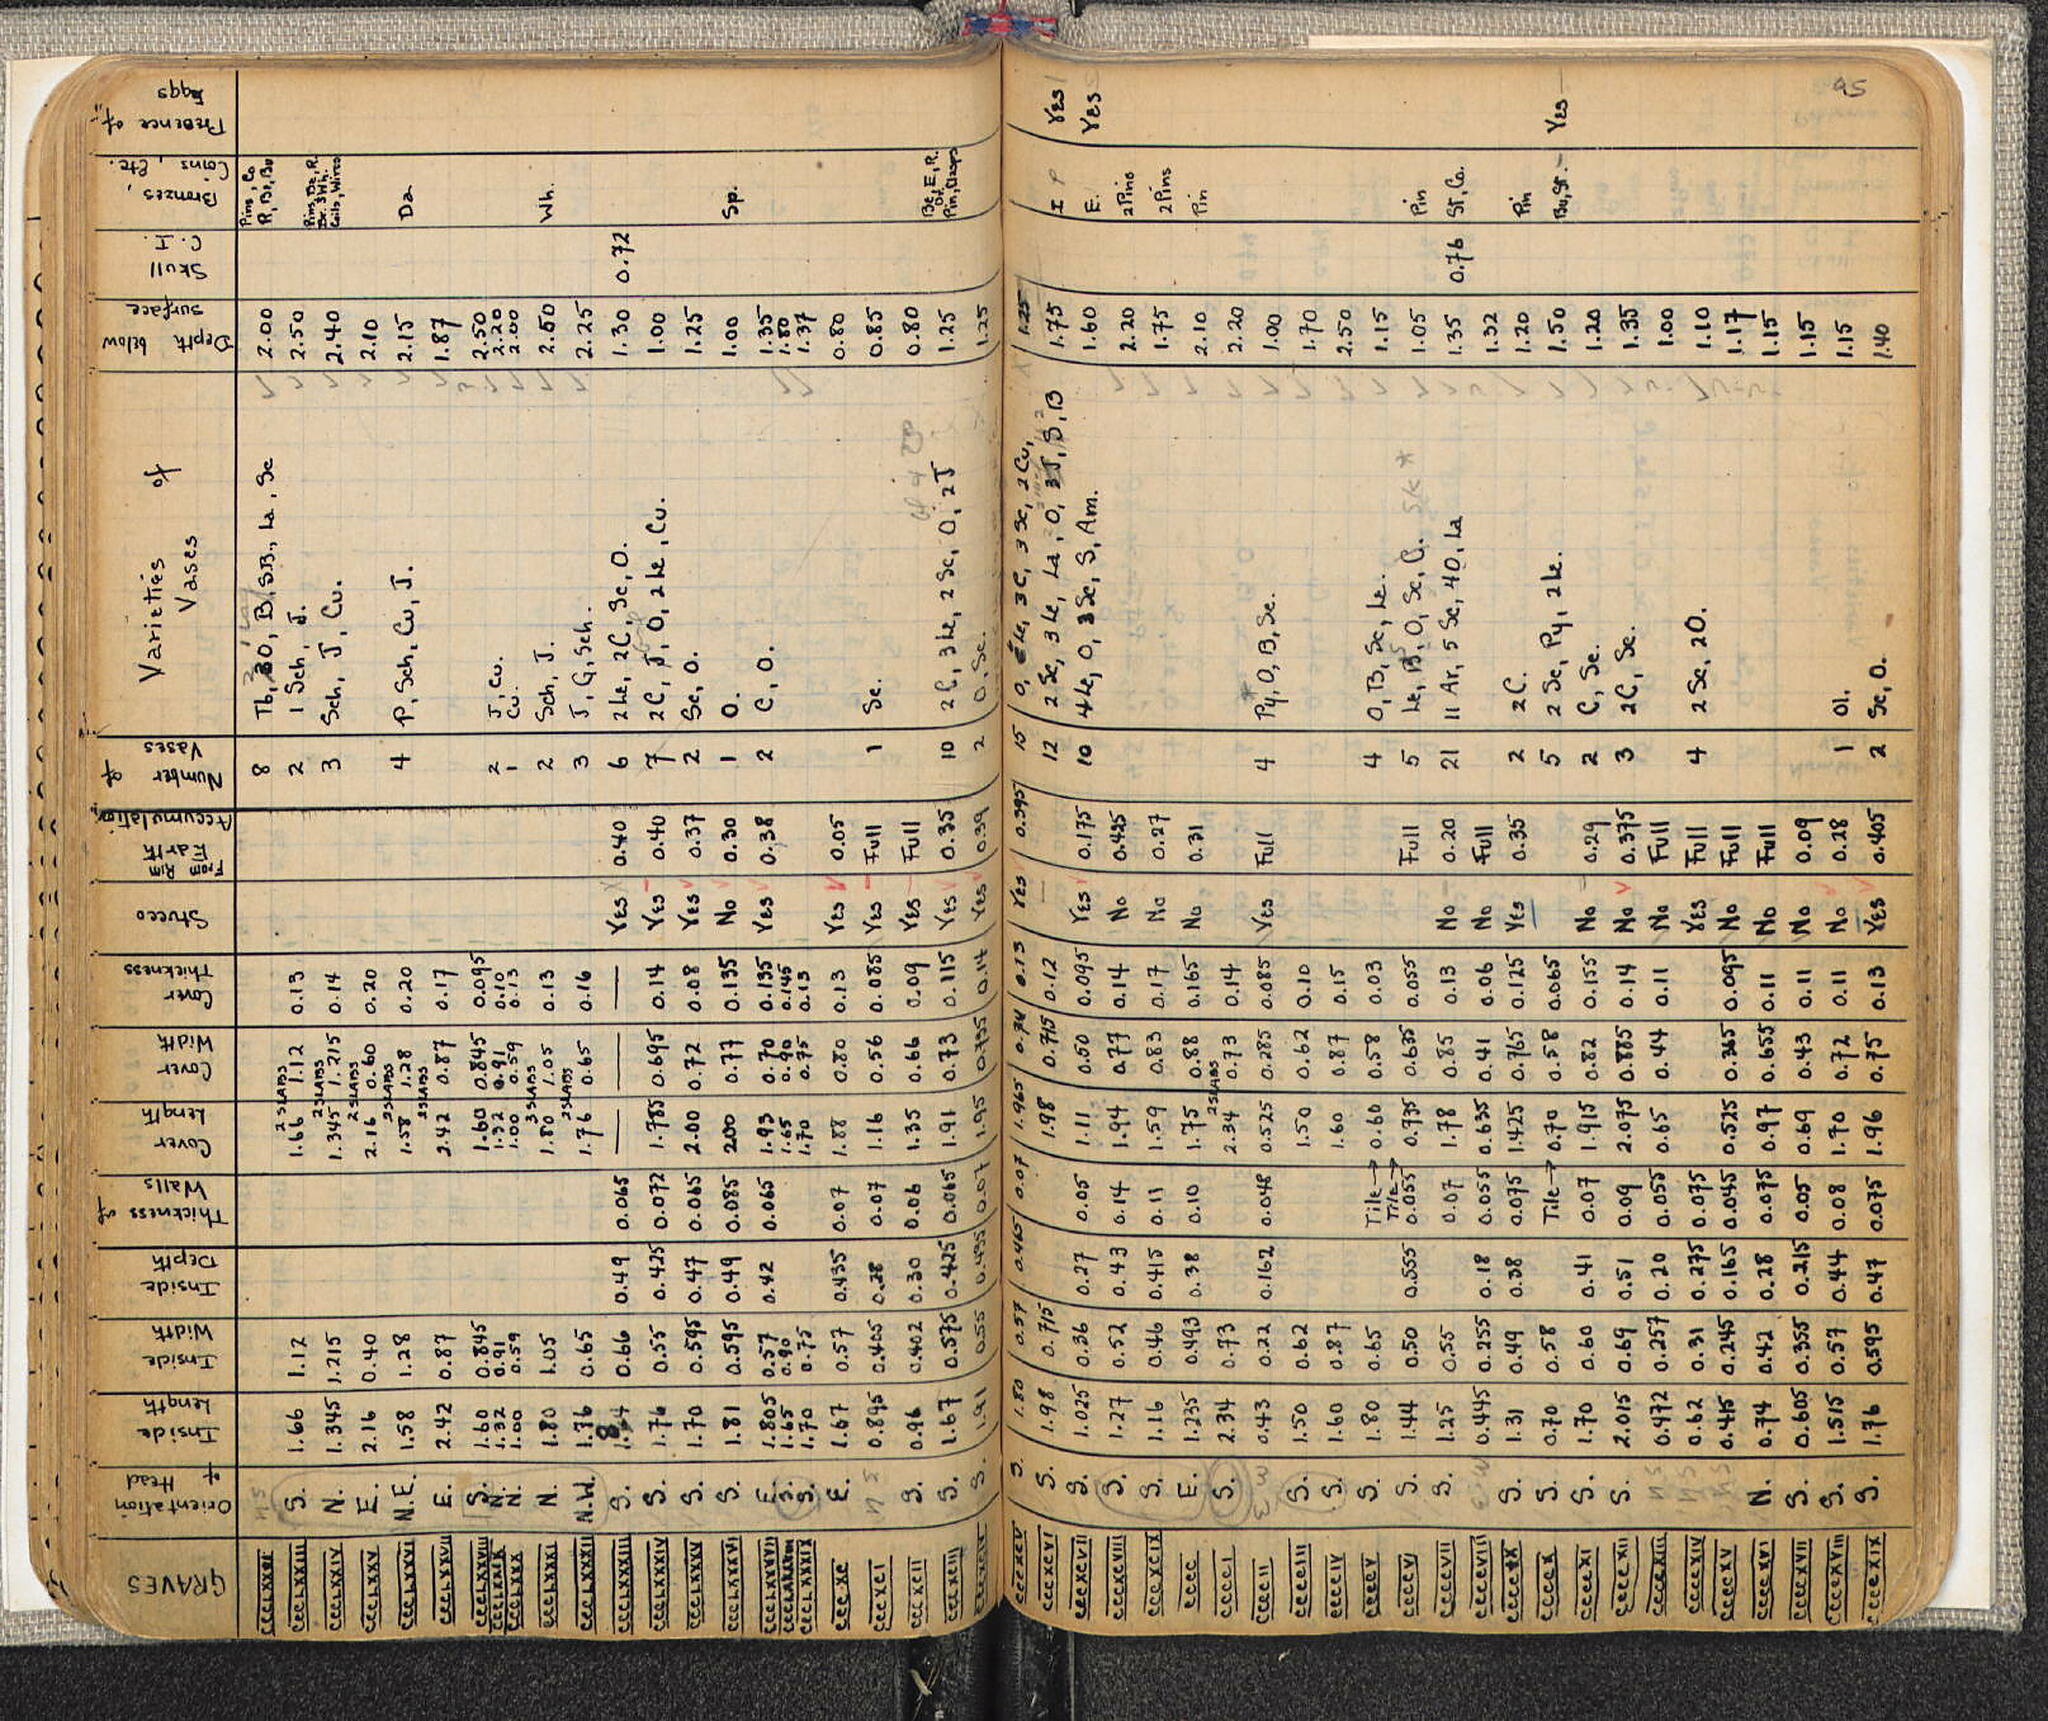 GRAVES Orientation of Head Inside Length Inside Width Inside Depth Thickness of Walls Cover Length Cover Width Cover Thickness Stucco From Rim to drift Accumulation Number of Vases Varieties of Vases Depth below surface Skull C. I. Bronzes, Coins, Etc. Presence of Eggs
CCCLXXII 8 Tb, 3O, B, SB., La, Sc 2.00 Pins, Co R, Br, Bu
CCCLXXIII S. 1.66 1.12 2 SLABS 1.66 1.12 0.13 2 1 Sch, J. 2.50
CCCLXXIV N. 1.345 1.215 2 SLABS 1.345 1.215 0.14 3 Sch, J, Cu. 2.40 Pins, Be, R. Br. 3 Wh. Coils, Wires
CCCLXXV E. 2.16 0.40 2 SLABS 2.16 0.60 0.20 2.10
CCCLXXVI N.E. 1.58 1.28 2 SLABS 1.58 1.28 0.20 4 P, Sch, Cu, J. 2.15 Da
CCCLXXVII E. 2.42 0.87 2 SLABS 2.42 0.87 0.17 1.87
CCCLXXVIII S. 1.60 0.845 1.60 0.845 0.095 2.50
CCCLXXIX N. 1.32 0.91 1.32 0.91 0.10 2 J, Cu. 2.20
CCCLXXX N. 1.00 0.59 1.00 0.59 0.13 1 Cu. 2.00
CCCLXXXI N. 1.80 1.05 3 SLABS 1.80 1.05 0.13 2 Sch, J. 2.50 Wh.
CCCLXXXII N.W. 1.76 0.65 2 SLABS 1.76 0.65 0.16 3 J, G, Sch. 2.25
CCCLXXXIII S. 1.84 0.66 0.49 0.065 — — — Yes 0.40 6 2 Le, 2C, Sc, O. 1.30 0.72
CCCLXXXIV S. 1.76 0.55 0.425 0.072 1.785 0.695 0.14 Yes 0.40 7 2C, J, O, 2 Le, Cu. 1.00
CCCLXXXV S. 1.70 0.595 0.47 0.065 2.00 0.72 0.08 Yes 0.37 2 Sc, O. 1.25
CCCLXXXVI S. 1.81 0.595 0.49 0.085 200 0.77 0.135 No 0.30 1 O. 1.00 Sp.
CCCLXXXVII E. 1.805 0.57 0.42 0.065 1.93 0.70 0.135 Yes 0.38 2 C, O. 1.35
CCCLXXXVIII S. 1.65 0.90 1.65 0.90 0.145 1.80
CCCLXXXIX S. 1.70 0.75 1.70 0.75 0.13 1.37
CCCXC E. 1.67 0.57 0.435 0.07 1.88 0.80 0.13 Yes 0.05 0.80
CCCXCI N S 0.895 0.405 0.28 0.07 1.16 0.56 0.085 Yes Full 1 Sc. 0.85
CCCXCII S. 0.96 0.402 0.30 0.06 1.35 0.66 0.09 Yes Full 0.80
CCCXCIII S. 1.67 0.575 0.425 0.065 1.91 0.73 0.115 Yes 0.35 10 2 C, 3 Le, 2 Sc, O, 2 J 1.25 Be, E, R. Br, Pin, Clasps
CCCXCIV S. 1.91 0.55 0.435 0.07 1.95 0.735 0.14 Yes 0.39 2 O, Sc. 1.25
95
CCCXCV S. 1.80 0.57 0.465 0.07 1.965 0.74 0.13 Yes 0.395 15 O, Le, 3C, 3 Sc, 2 Cu, 1.25
CCCXCVI S. 1.98 0.715 1.98 0.715 0.12 12 2 Sc, 3 Le, La, O, J, S, B 1.75 I Yes
CCCXCVII S. 1.025 0.36 0.27 0.05 1.11 0.50 0.095 Yes 0.175 10 4 Le, O, 3 Sc, S, Am. 1.60 E. Yes
CCCXCVIII S. 1.27 0.52 0.43 0.14 1.94 0.77 0.14 No 0.425 2.20 2 Pins
CCCXCIX S. 1.16 0.46 0.415 0.11 1.59 0.83 0.17 No 0.27 1.75 2 Pins
CCCC E. 1.235 0.493 0.38 0.10 1.75 0.88 0.165 No 0.31 2.10 Pin
CCCCI S. 2.34 0.73 2 SLABS 2.34 0.73 0.14 2.20
CCCCII 0.43 0.22 0.162 0.048 0.525 0.285 0.085 Yes Full 4 Py, O, B, Sc. 1.00
CCCCIII S. 1.50 0.62 1.50 0.62 0.10 1.70
CCCCIV S. 1.60 0.87 1.60 0.87 0.15 2.50
CCCCV S. 1.80 0.65 Tile→ 0.60 0.58 0.03 4 O, B, Sc, Le. 1.15
CCCCVI S. 1.44 0.50 0.555 Tile→ 0.055 0.735 0.635 0.055 Full 5 Le, B, O, Sc, C. 1.05 Pin
CCCCVII S. 1.25 0.55 0.07 1.78 0.85 0.13 No 0.20 21 11 Ar, 5 Sc, 4O, La 1.35 0.76 St, Co.
CCCCVIII 0.445 0.255 0.18 0.055 0.635 0.41 0.06 No Full 1.32
CCCCIX S. 1.31 0.49 0.38 0.075 1.425 0.765 0.125 Yes 0.35 2 2C. 1.20 Pin
CCCCX S. 0.70 0.58 Tile→ 0.70 0.58 0.065 5 2 Sc, Py, 2 Le. 1.50 Bu, St. — Yes
CCCCXI S. 1.70 0.60 0.41 0.07 1.915 0.82 0.155 No 0.29 2 C, Sc. 1.20
CCCCXII S. 2.015 0.69 0.51 0.09 2.075 0.885 0.14 No 0.375 3 2C, Sc. 1.35
CCCCXIII N S 0.972 0.257 0.20 0.055 0.65 0.44 0.11 No Full 1.00
CCCCXIV N S 0.62 0.31 0.275 0.075 Yes Full 4 2 Sc, 2O. 1.10
CCCCXV N S 0.415 0.245 0.165 0.045 0.525 0.365 0.095 No Full 1.17
CCCCXVI N. 0.74 0.42 0.28 0.075 0.97 0.655 0.11 No Full 1.15
CCCCXVII S. 0.605 0.355 0.215 0.05 0.69 0.43 0.11 No 0.09 1.15
CCCCXVIII S. 1.515 0.57 0.44 0.08 1.70 0.72 0.11 No 0.28 1 Ol. 1.15
CCCCXIX S. 1.76 0.595 0.47 0.075 1.96 0.75 0.13 Yes 0.405 2 Sc, O. 1.40